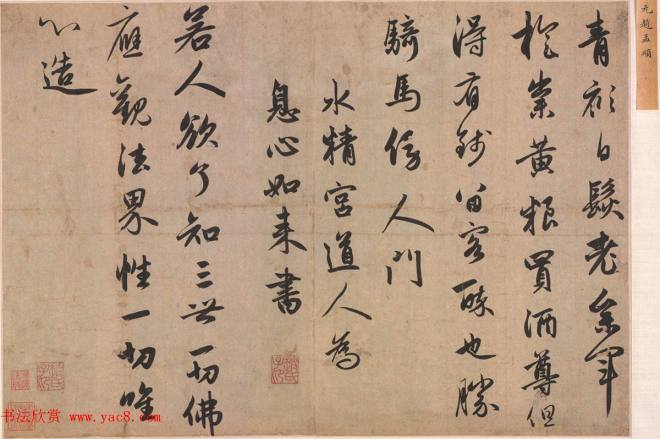 元趙孟頫
青衫白髮老參軍
旋糶黃粮買酒尊但
得有錢留客醉也勝
騎馬傍人門
水精宮道人為
息心如來書
若人欲了知三世一切佛
應觀法界性一切唯
心造
书法欣赏 www.yac8.com